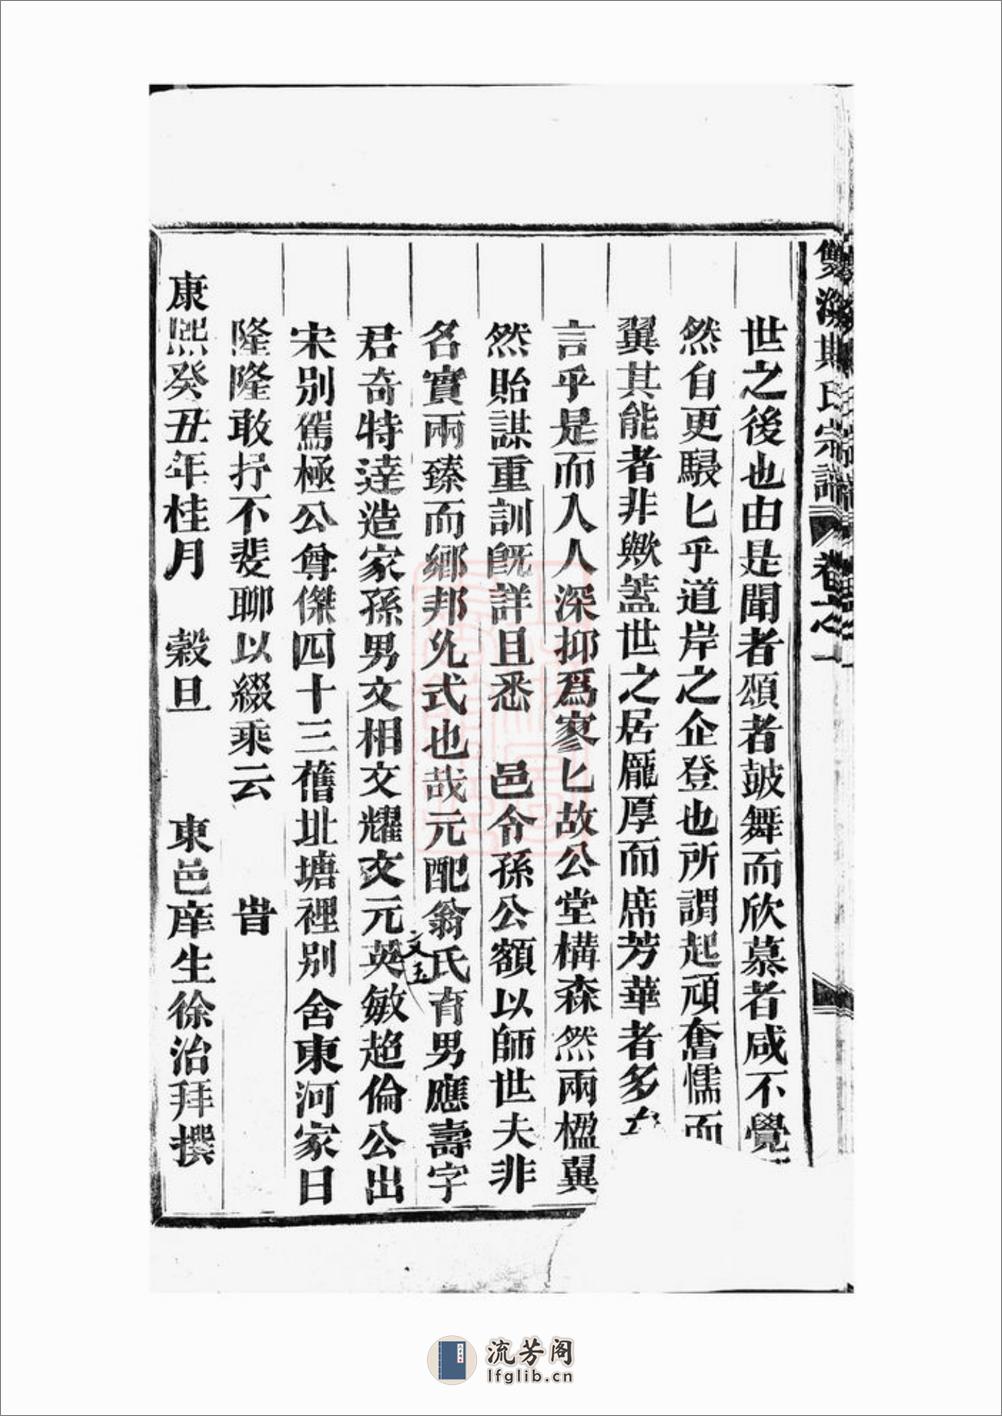 斯氏宗譜 卷之一
世之後也由是聞者頌者鼓舞而欣慕者咸不覺
然自更駸匕乎道岸之企登也所謂起頑奮懦而
翼其能者非歟蓋世之居龐厚而席芳華者多
言乎是而入人深抑爲寥匕故公堂構森然兩楹翼
然貽謀重訓旣詳且悉 邑令孫公額以師世夫非
名實兩臻而鄉邦允式也哉元配翁氏育男應壽字
文玉
君奇特逹造家孫男文相文耀文元英敏超倫公出
宋別駕極公尊傑四十三舊址塘裡別舍東河家日
隆隆敢抒不斐聊以綴乘云 旹
康熙癸丑年桂月 榖旦 東邑庠生徐治拜撰
流芳阁
lfglib.cn